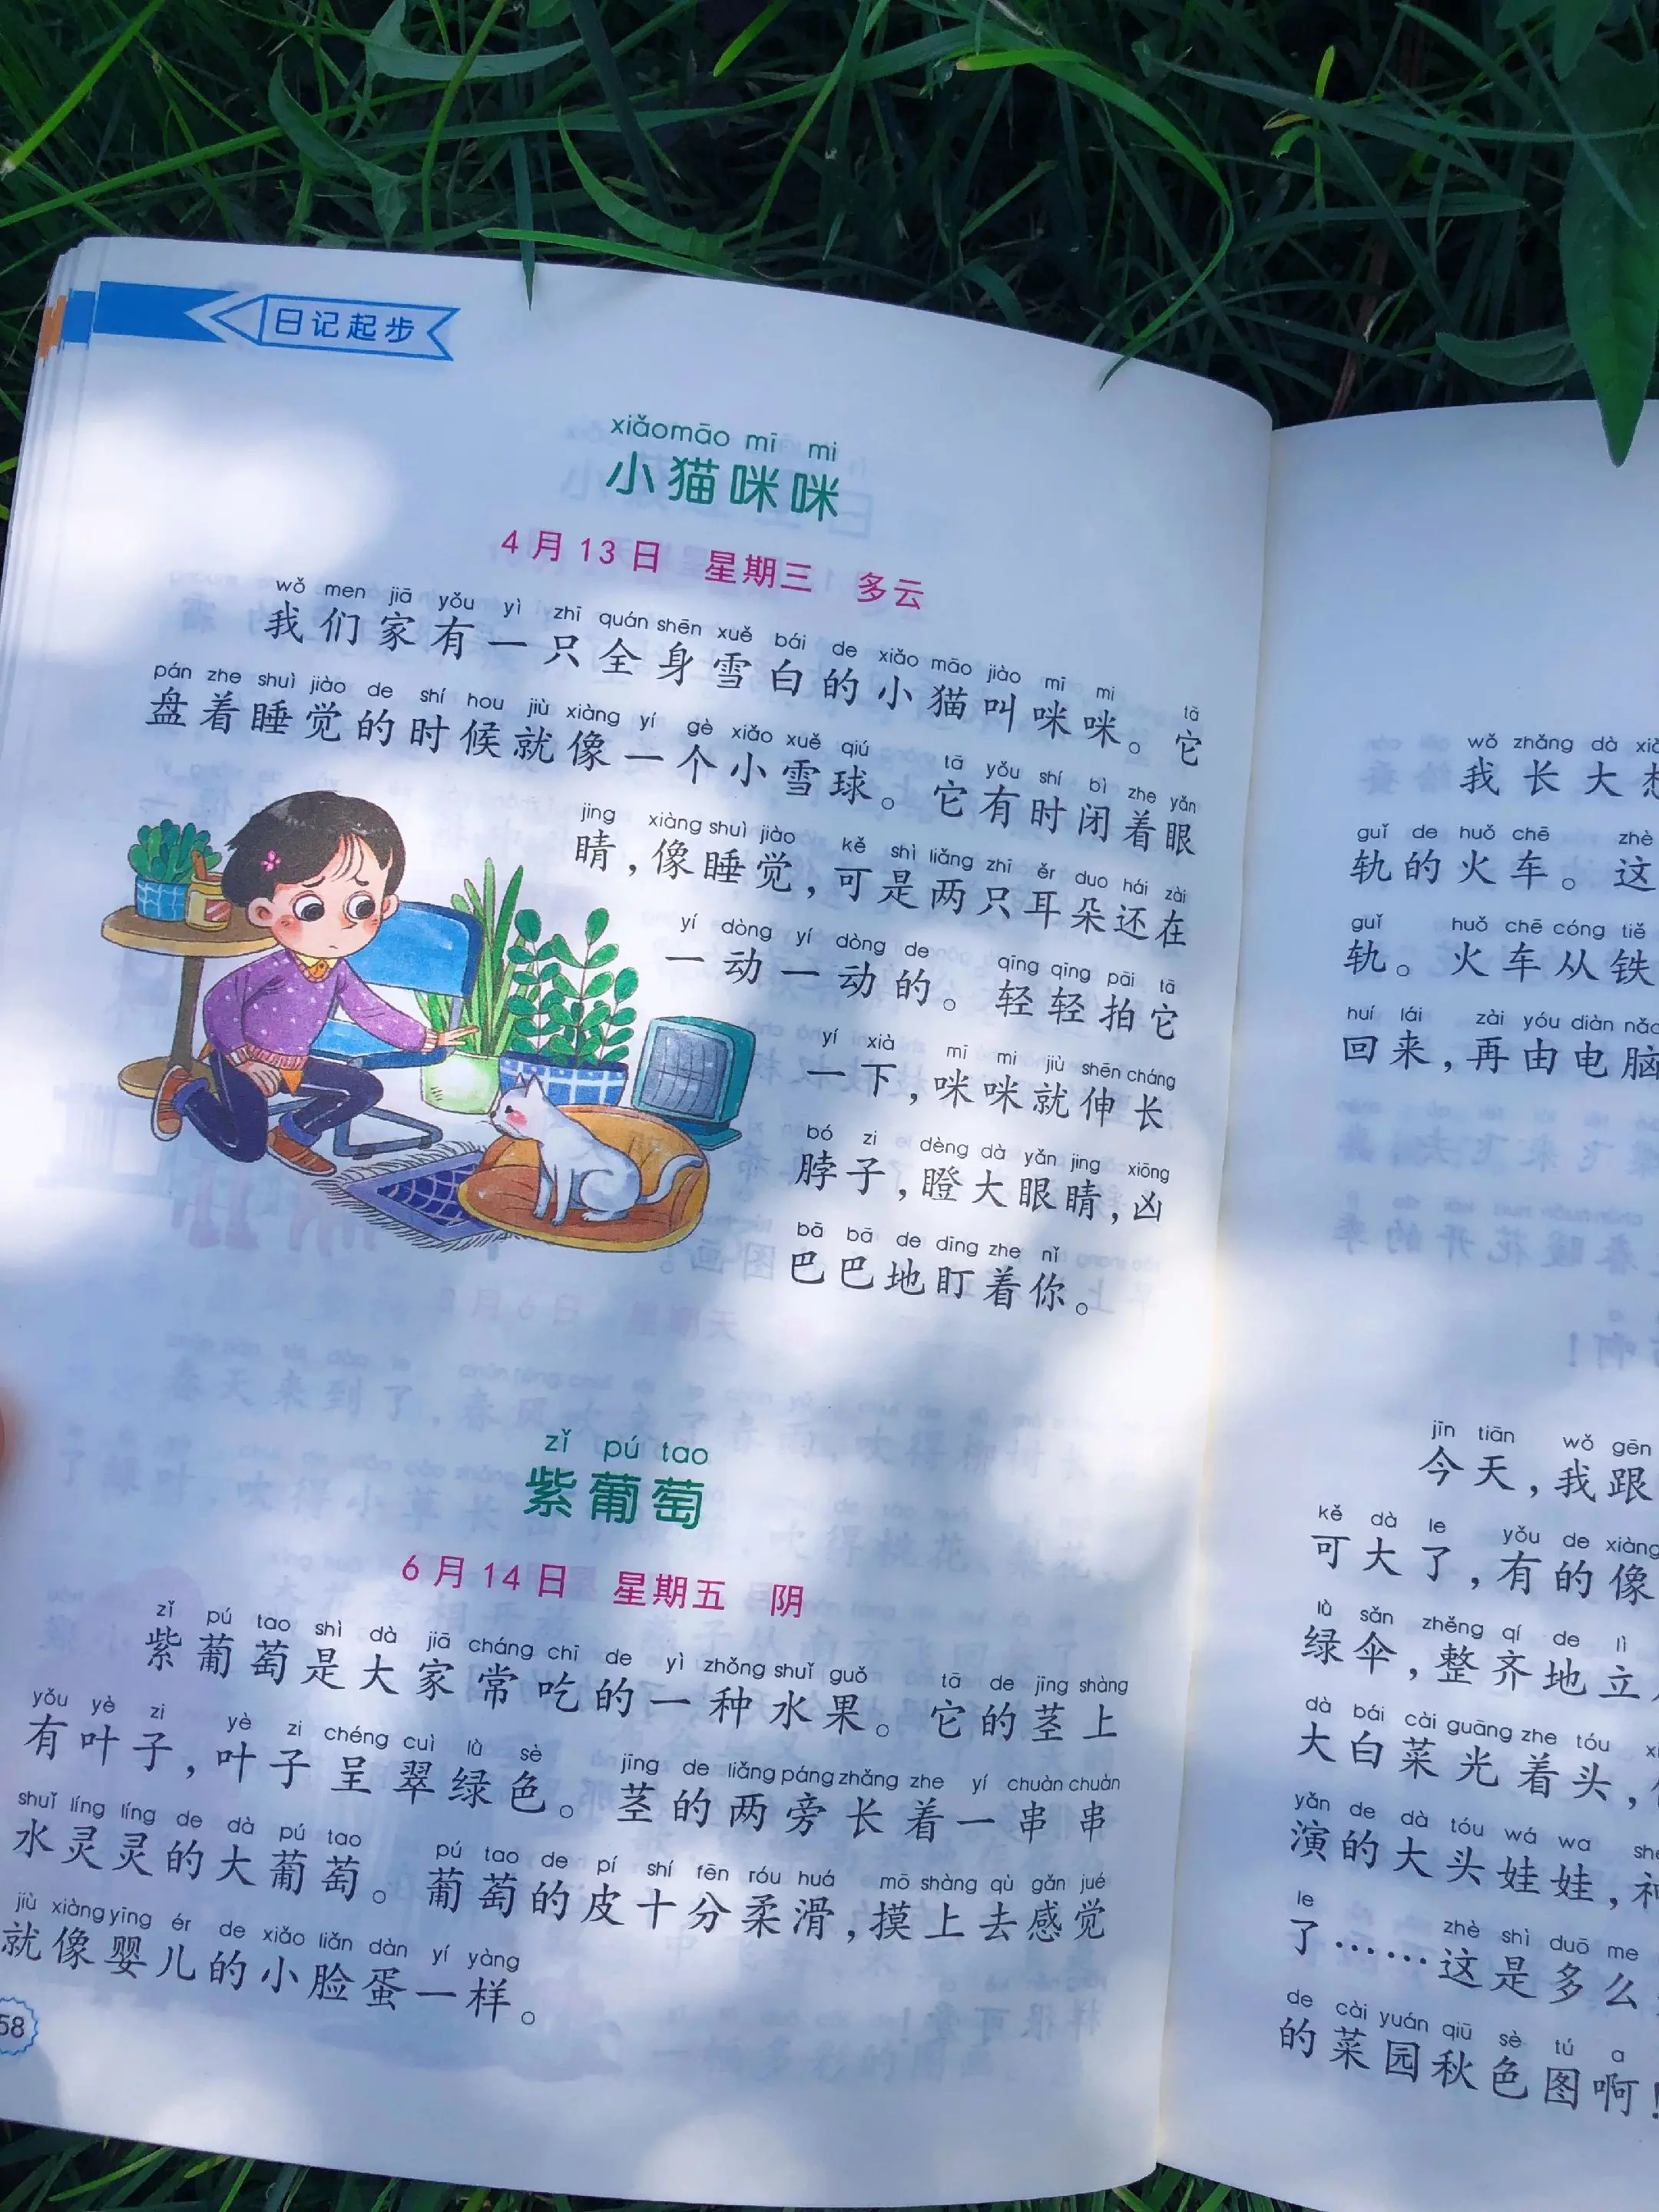 日记起步
xiǎomāo mī mi
小猫咪咪
4月13日 星期三 多云
wǒ men jiā yǒu yì zhī quán shēn xuě bái de xiǎo māo jiào mī mi tā
我们家有一只全身雪白的小猫叫咪咪。它
pán zhe shuì jiào de shí hou jiù xiàng yí gè xiǎo xuě qiú tā yǒu shí bì zhe yǎn
盘着睡觉的时候就像一个小雪球。它有时闭着眼
jing xiàng shuì jiào kě shì liǎng zhī ěr duo hái zài
睛，像睡觉，可是两只耳朵还在
yí dòng yí dòng de qīng qīng pāi tā
一动一动的。轻轻拍它
yí xià mī mi jiù shēn cháng
一下，咪咪就伸长
bó zi dèng dà yǎn jing xiōng
脖子，瞪大眼睛，凶
bā bā de dīng zhe nǐ
巴巴地盯着你。
zǐ pú tao
紫葡萄
6月14日 星期五 阴
zǐ pú tao shì dà jiā cháng chī de yì zhǒng shuǐ guǒ tā de jīng shàng
紫葡萄是大家常吃的一种水果。它的茎上
yǒu yè zi yè zi chéng cuì lǜ sè jīng de liǎng páng zhǎng zhe yí chuàn chuàn
有叶子，叶子呈翠绿色。茎的两旁长着一串串
shuǐ líng líng de dà pú tao pú tao de pí shí fēn róu huá mō shàng qù gǎn jué
水灵灵的大葡萄。葡萄的皮十分柔滑，摸上去感觉
jiù xiàng yīng ér de xiǎo liǎn dàn yí yàng
就像婴儿的小脸蛋一样。
58
wǒ zhǎng dà
我长大
guǐ de huǒ chē zhè
轨的火车。这
guǐ huǒ chē cóng tiě
轨。火车从铁
huí lái zài yóu diàn nǎo
回来，再由电脑
jīn tiān wǒ gēn
今天，我跟
kě dà le yǒu de xiàng
可大了，有的像
lǜ sǎn zhěng qí de lì
绿伞，整齐地立
dà bái cài guāng zhe tóu
大白菜光着头，
yǎn de dà tóu wá wa
演的大头娃娃，
le zhè shì duō me
了……这是多么
de cài yuán qiū sè tú a
的菜园秋色图啊！